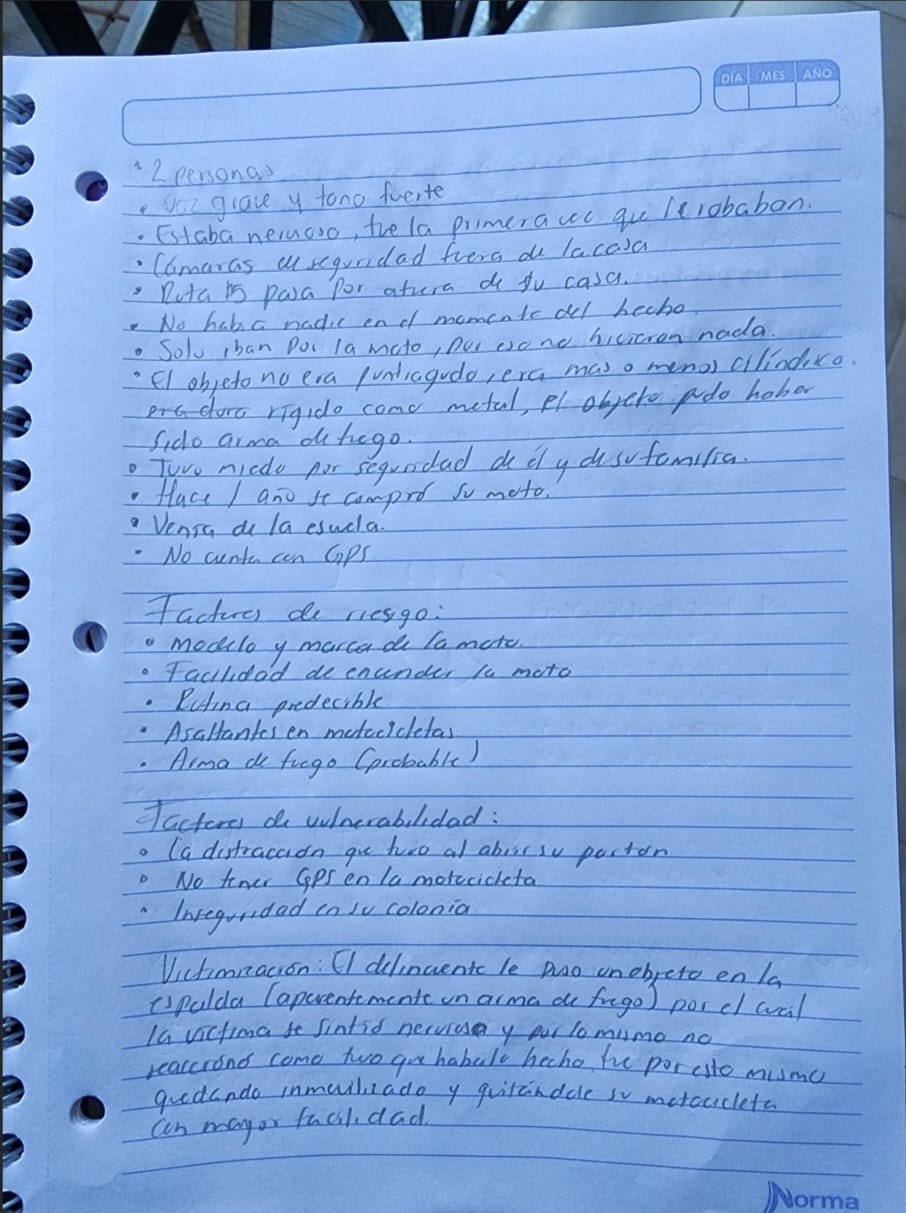 DÍA MES AÑO
• 2 personas
• Voz grave y tono fuerte
• Estaba nervioso, fue la primera vez que le robaban.
• Cámaras de seguridad fuera de la casa
• Ruta 15 pasa por afuera de su casa.
• No había nadie en el momento del hecho.
• Solo iban por la moto, por eso no hicieron nada.
• El objeto no era puntiagudo, era mas o menos cilíndrico.
era duro rígido como metal, el objeto pudo haber
sido arma de fuego.
• Tuvo miedo por seguridad de él y de su familia.
• Hace 1 año se compró su moto.
• Venía de la escuela.
• No cuenta con GPS
Factores de riesgo:
• Modelo y marca de la moto.
• Facilidad de encender la moto
• Rutina predecible
• Asaltantes en motocicletas
• Arma de fuego (probable)
Factores de vulnerabilidad:
• La distracción que tuvo al abrir su portón
• No tener GPS en la motocicleta
• Inseguridad en su colonia
Victimización: El delincuente le puso un objeto en la
espalda (aparentemente un arma de fuego) por el cual
la víctima se sintió nerviosa y por lo mismo no
reaccionó como tuvo que haberlo hecho, fue por esto mismo
quedando inmovilizado y quitándole su motocicleta
con mayor facilidad.
Norma